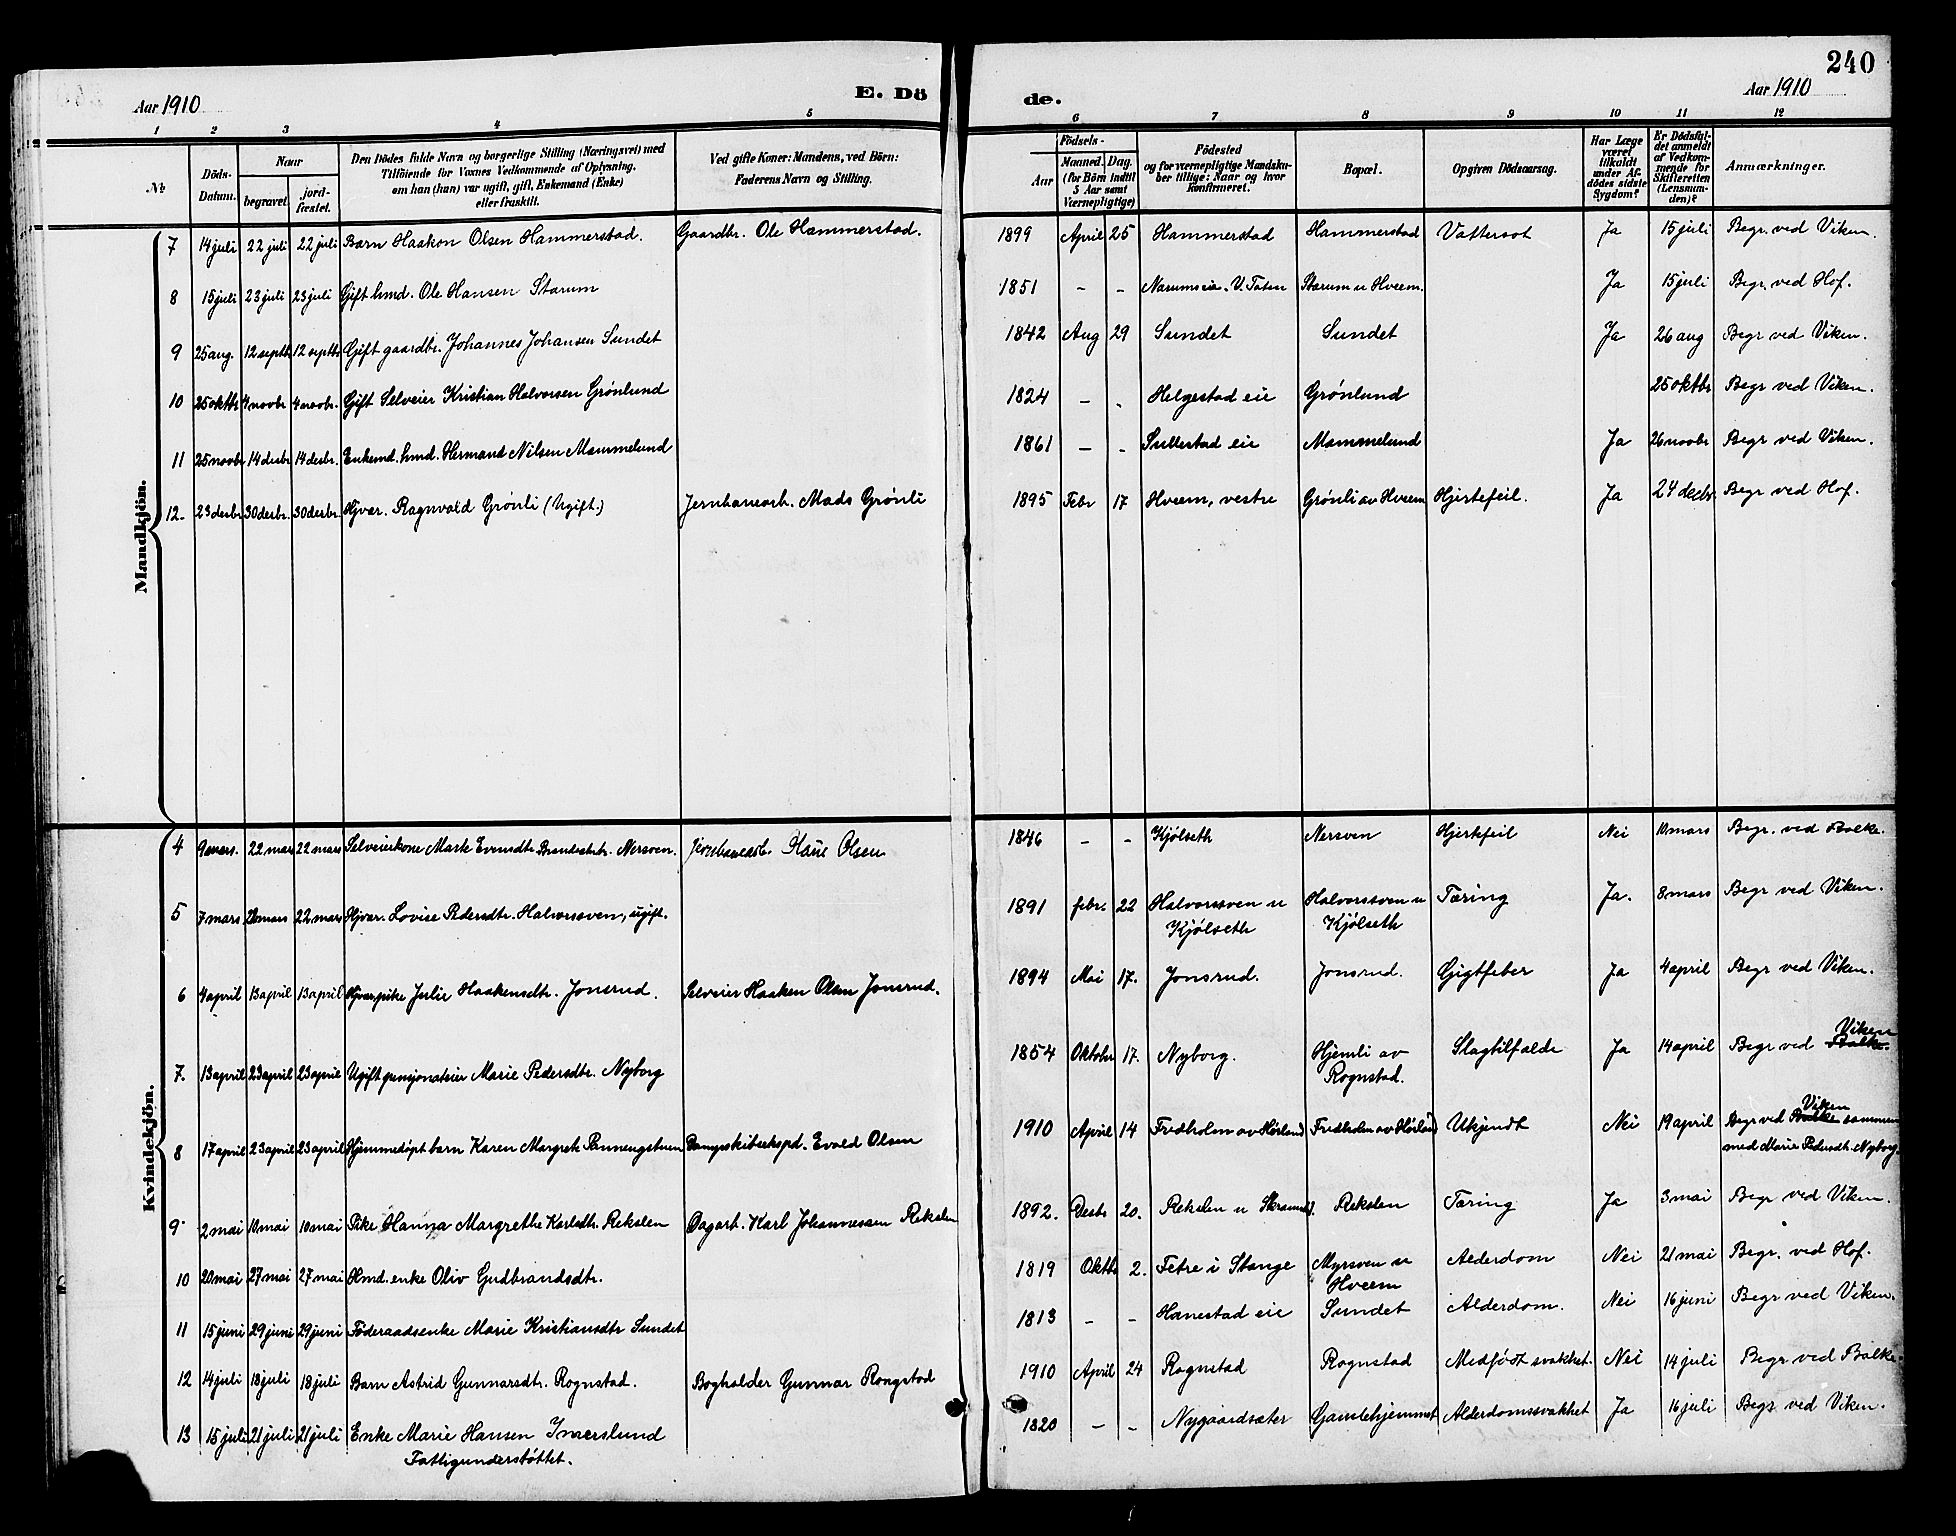 240
Aar 1910
E. Dö
de.
Aar 1910
1 2 3 4 5 6 7 8 9 10 11 12
№
Döds-
Datum.
Naar
begravet.
jord-
fæstet.
Den Dödes fulde Navn og borgerlige Stilling (Næringsvei) med
Tilföiende for Voxnes Vedkommende af Oplysning,
om han (hun) var ugift, gift, Enkemand (Enke)
eller fraskilt.
Ved gifte Koner: Mandens, ved Börn:
Faderens Navn og Stilling.
Födsels-
Aar
Maaned. Dag.
(for Börn indtil
5 Aar samt
Værnepligtige)
Födested
og for værnepligtige Mandsku-
ber tillige: Naar og hvor
Konfirmeret.
Bopæl.
Opgiven Dödsaarsag.
Har Læge
været
tilkaldt
under Af-
dödes sidste
Sygdom?
Er Dödsfal-
det anmeldt
af Vedkom-
mende for
Skifteretten
(Lensman-
den)?
Anmærkninger.
Mandkjön.
7 14 juli 22 juli 22 juli Barn Haakon Olsen Hammerstad. Gaardbr. Ole Hammerstad. 1899 April 25 Hammerstad Hammerstad Vattersot Ja 15 juli Begr. ved Viken.
8 15 juli 23 juli 23 juli Gift hmd. Ole Hansen Starum 1851 - - Narumseie. V. Toten Starum u Hveem. Ja 15 juli Begr. ved Hof.
9 25 aug. 12 septb 12 septb Gift gaardbr. Johannes Johansen Sundet 1842 Aug 29 Sundet Sundet Ja 26 aug Begr ved Viken.
10 25 oktbr 4 novbr 4 novbr. Gift Selveier Kristian Halvorsen Grönlund 1824 - - Helgestad eie Grønlund 25 oktbr Begr ved Viken.
11 25 novbr 14 desbr 14 desbr. Enkemd. hmd. Hermand Nilsen Mammelund 1861 - - Sullestad eie Mammelund Ja 26 novbr Begr ved Viken.
12. 23 desbr 30 desbr. 30 desbr. Hjvær. Ragnvald Grönli (Ugift.) Jernbanearb. Mads Grönli 1895 Febr 17 Hveem, vestre Grönli av Hveem Hjertefeil. Ja 24 decbr Begr ved Hof.
Kvindekjön.
4 22 mars 22 mars Selveierkone Nersven. Olsen 1846 - - Kjølseth Nersven Hjertfeil Nei 10 mars Begr. ved Balke.
5 7 mars mars 22 mars Hjvær. Lovise Pedersdtr. Halvorssven, ugift. 1891 febr. 22 Halvorssven u Halvorssven u Tæring Ja. 8 mars Begr ved Viken.
Kjølseth Kjølseth
6 4 april 13 april 13 april Hjvær. pike Julie Haakensdtr. Jonsrud. Selveier Haaken Olsen Jonsrud. 1894 Mai 17. Jonsrud. Jonsrud. Gigtfeber Ja 4 april Begr ved Viken.
Viken
7. 13 april 23 april 23 april Ugift pensjonatrice Marie Pedersdtr. Nyborg 1854 Oktobr 17. Nyborg. Hjemli av Slagtilfælde Ja 14 april Begr ved Balke.
Rognstad.
Viken
8 17 april 23 april 23 april Hjemmedøpt barn Karen Margrete Evald Olsen 1910 April 14 Fredholm av Hørland Fredholm av Hørland Ukjendt Nei 19 april Begr ved Balke sammen
med Marie Pedersdtr. Nyborg.
9. 2 mai 10 mai 10 mai Pike Hanna Margrethe Karlsdtr. Rekslen Dagarb. Karl Johannessen Rekslen 1892. Desbr 20. Rekslen u Rekslen Tæring Ja 3 mai Begr ved Viken.
10 20 mai 27 mai 27 mai Hmd. enke Oliv Gudbrandsdtr. 1819 Oktb 2. Fetre i Stange Myrsven u Alderdom Nei 21 mai Begr. ved Hof.
Hveem
11 15 juni 29 juni 29 juni Føderaadsenke Marie Kristiansdtr Sundet 1813 - - Hanestad eie Sundet Alderdom. Nei 16 juni Begr ved Viken.
12 14 juli 18 juli 18 juli Barn Astrid Gunnarsdtr. Rognstad. Bogholder Gunnar Rongstad 1910 April 24 Rognstad Rognstad Medfødt svakhet. Nei 14 juli Begr. ved Balke.
13 15 juli 21 juli 21 juli Enke Marie Hansen Imerslund 1820 - - Nygaardsæter Gamlehjemmet Alderdomssvakhet Ja 16 juli Begr ved Viken.
Fattigunderstøttet.